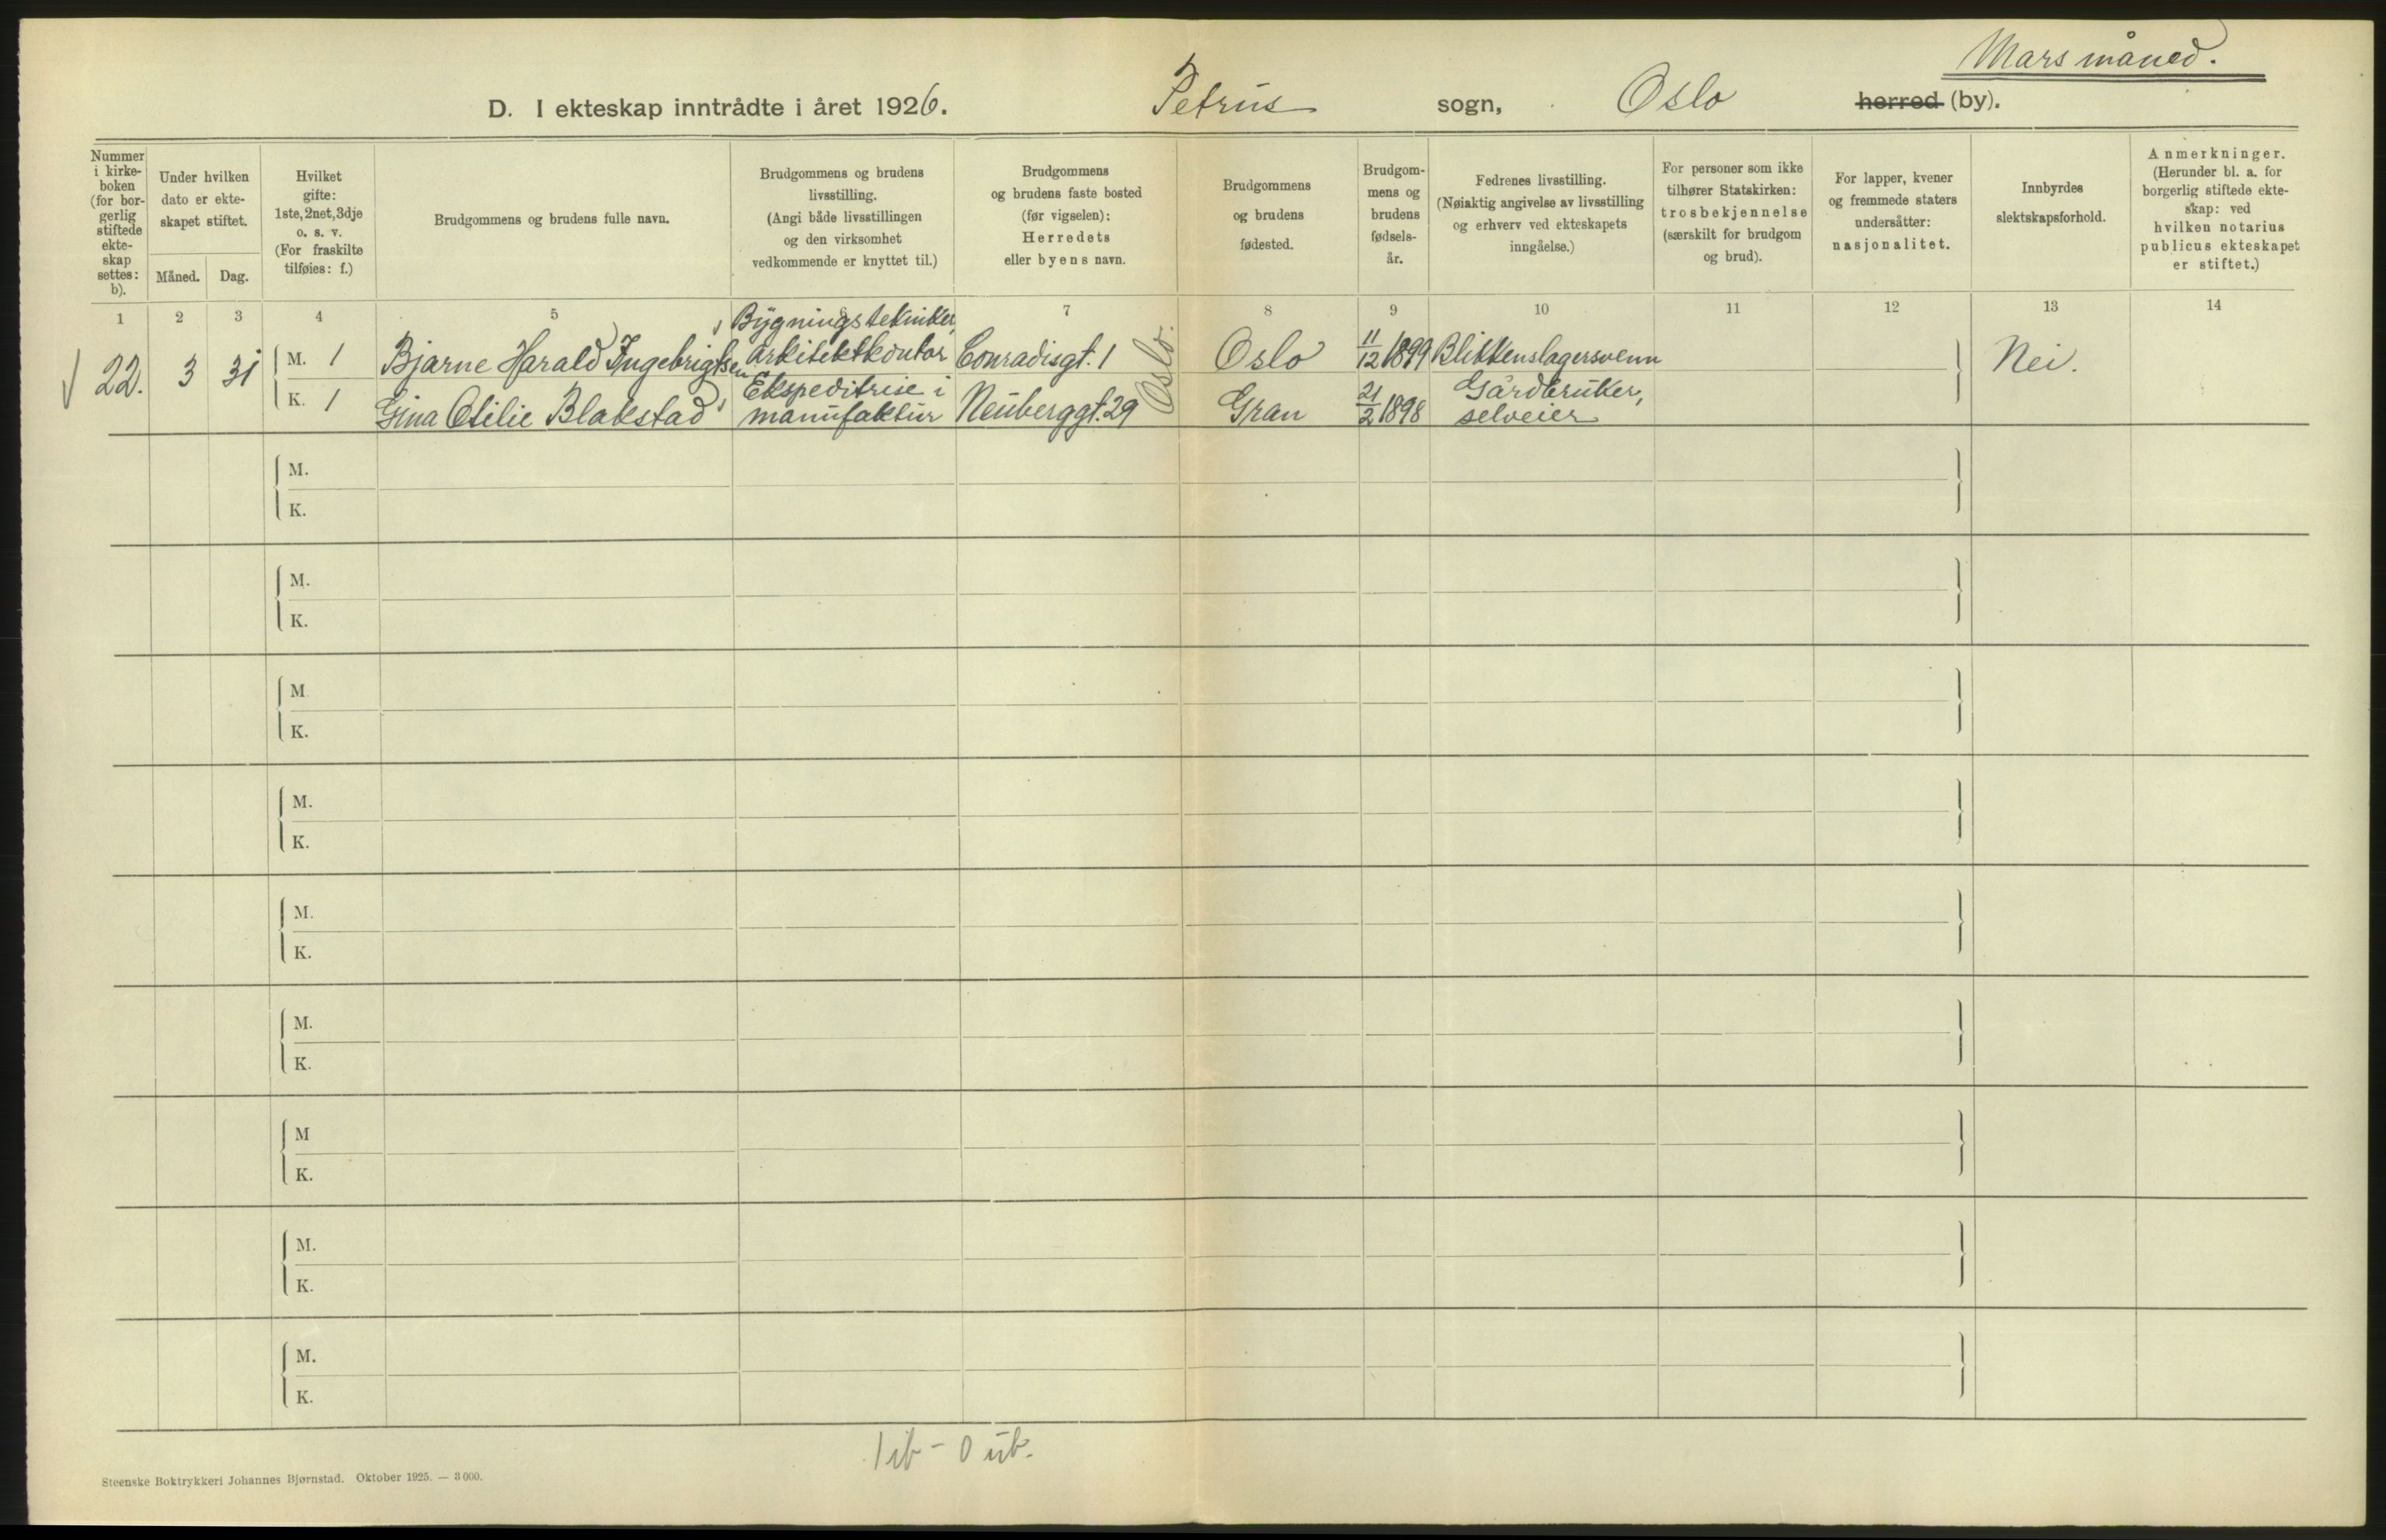 Mars måned.
D. I ekteskap inntrådte i året 1926. Petrus sogn, Oslo herred (by).
Nummer i kirke- boken (for bor- gerlig stiftede ekte- skap settes: b).
Under hvilken dato er ekte- skapet stiftet.
Måned. Dag.
Hvilket gifte: 1ste, 2net, 3dje o. s. v. (For fraskilte tilføies: f.)
Brudgommens og brudens fulle navn.
Brudgommens og brudens livsstilling. (Angi både livsstillingen og den virksomhet vedkommende er knyttet til.)
Brudgommens og brudens faste bosted (før vigselen): Herredets eller byens navn.
Brudgommens og brudens fødested.
Brudgom- mens og brudens fødsels- år.
Fedrenes livsstilling. (Nøiaktig angivelse av livsstilling og erhverv ved ekteskapets inngåelse.)
For personer som ikke tilhører Statskirken: trosbekjennelse (særskilt for brudgom og brud).
For lapper, kvener og fremmede staters undersåtter: nasjonalitet.
Innbyrdes slektskapsforhold.
Anmerkninger. (Herunder bl. a. for borgerlig stiftede ekte- skap: ved hvilken notarius publicus ekteskapet er stiftet.)
1 2 3 4 5 6 7 8 9 10 11 12 13 14
22. 3 31
M. 1 Bjarne Harald Ingebrigtsen Bygningstekniker, arkitektkontor Conradisgt. 1 Oslo 11/12 1899 Blikkenslagersvenn
K. 1 Gina Otilie Blakstad Ekspeditrise i manufaktur Neuberggt. 29 Gran 21/2 1898 Gårdbruker, selveier
Oslo.
Nei.
M.
K.
M.
K.
M
K.
M.
K.
M.
K.
M.
K.
M
K.
M.
K.
M.
K.
1 ib - 0 ub.
Steenske Boktrykkeri Johannes Bjørnstad. Oktober 1925. — 3 000.